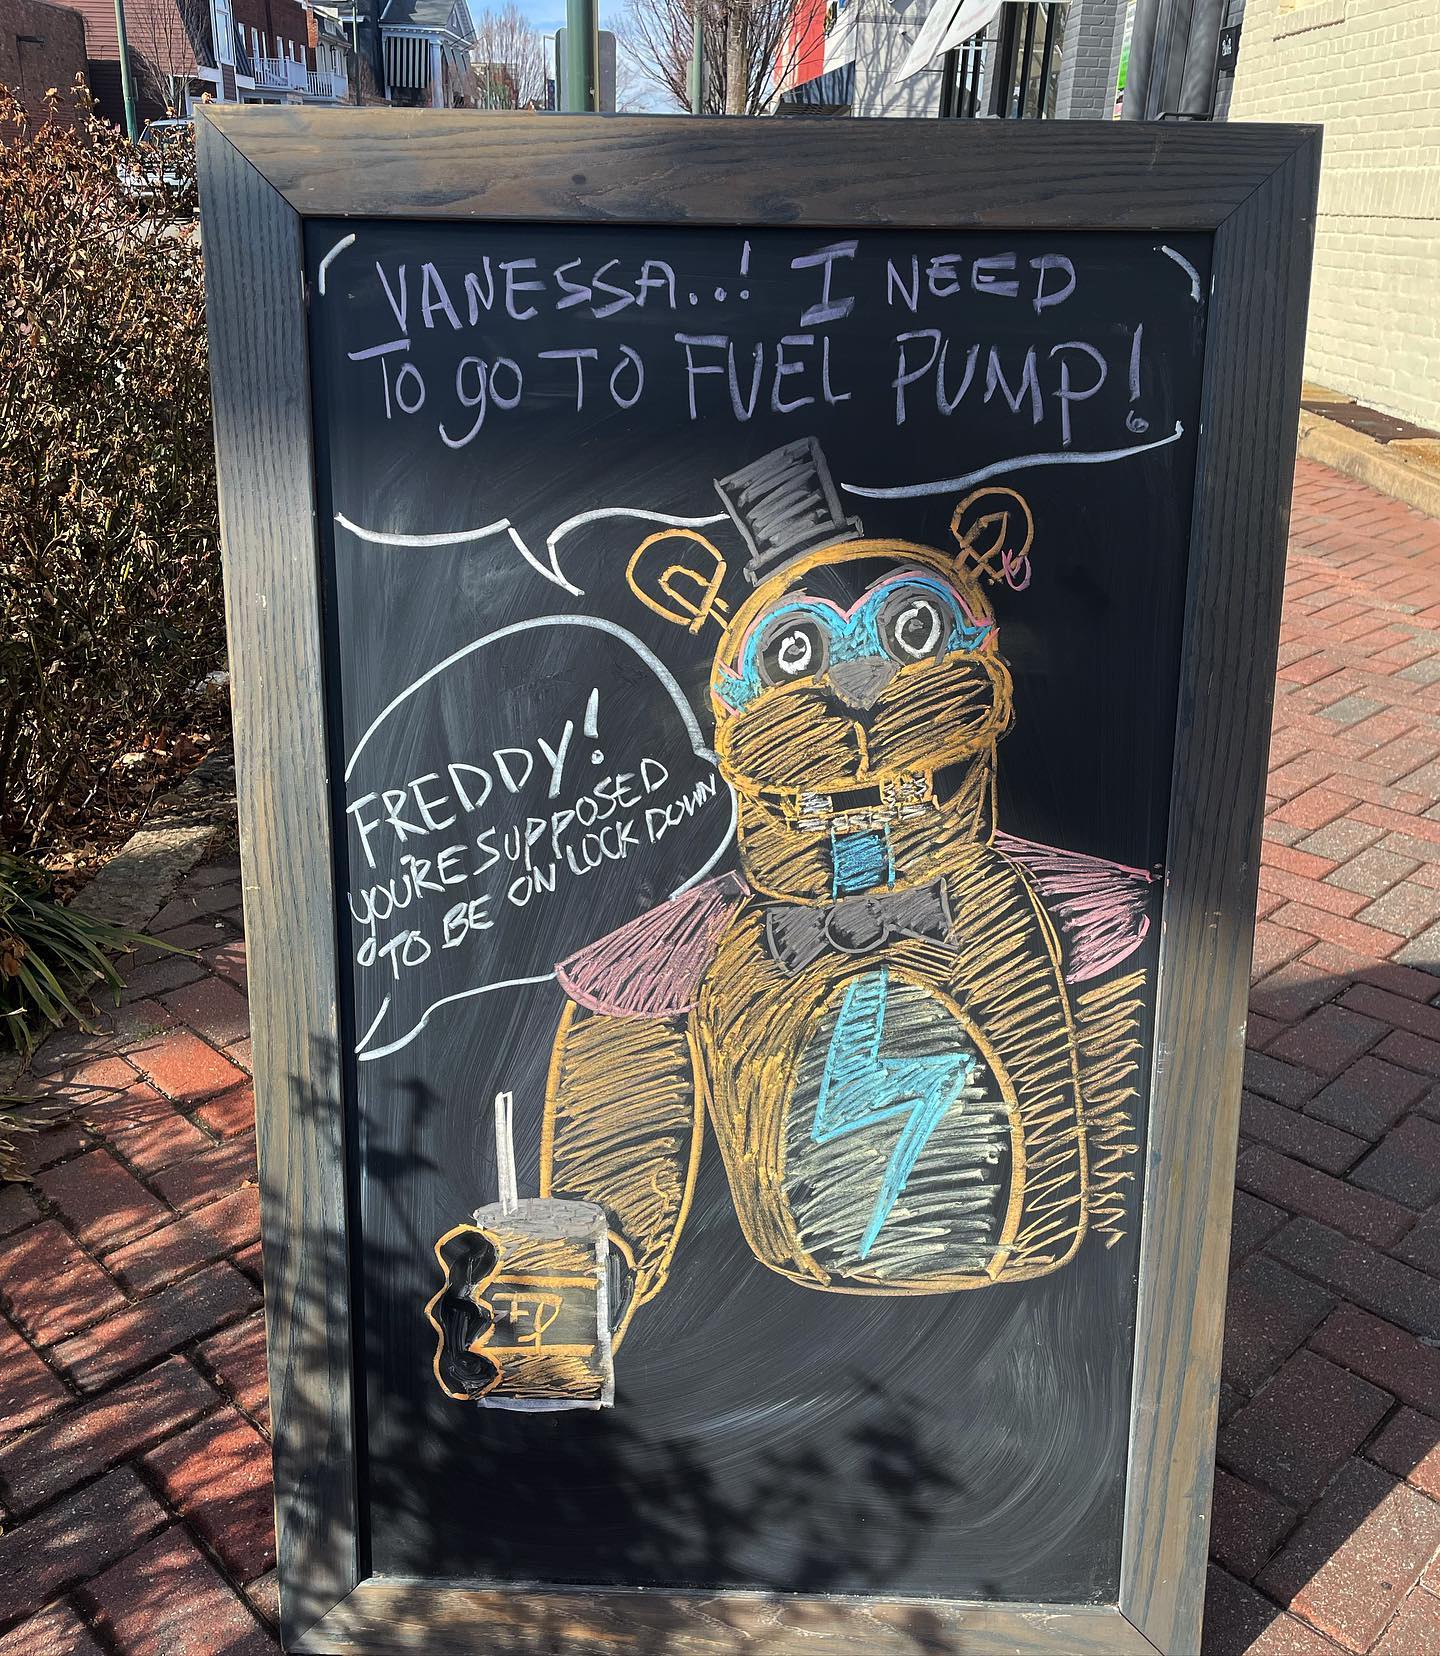 VANESSA..! I NEED
To go TO FUEL PUMP!
FREDDY!
YOU'RE SUPPOSED
TO BE ON LOCK DOWN
FP